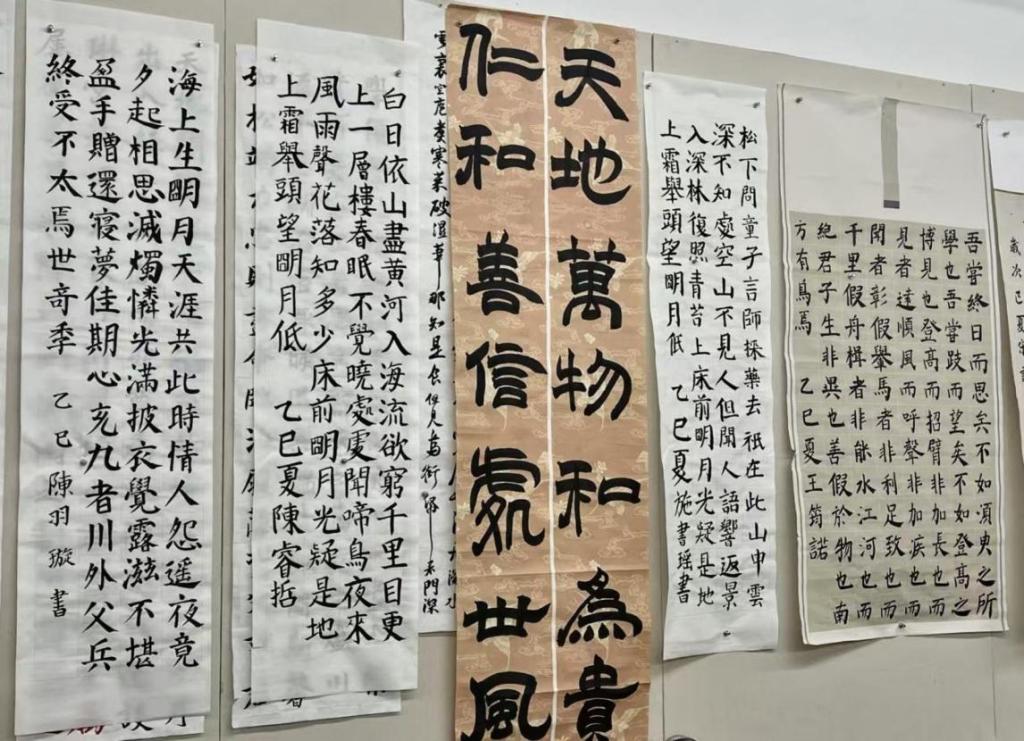 吾嘗終日而思矣不如須臾之所
學也吾嘗跂而望矣不如登高之
博見也登高而招臂非加長也而
見者達順風而呼聲非加疾也而
聞者彰假舉馬者非利足致也而
千里假舟楫者非能水江河也而
絶君子生非異也善假於物也南
方有鳥焉 乙巳夏王筠諾
松下問童子言師採藥去祇在此山中雲
深不知處空山不見人但聞人語響返景
入深林復照青苔上床前明月光疑是地
上霜舉頭望明月低 乙巳夏施書瑶書
天地萬物和為貴
仁和善信處世風
白日依山盡黃河入海流欲窮千里目更
上一層樓春眠不覺曉處處聞啼鳥夜來
風雨聲花落知多少床前明月光疑是地
上霜舉頭望明月低 乙巳夏陳睿哲
海上生明月天涯共此時情人怨遥夜竟
夕起相思滅燭憐光滿披衣覺露滋不堪
盈手贈還寢夢佳期心充九者川外父兵
終受不太焉世奇季 乙巳陳羽璇書